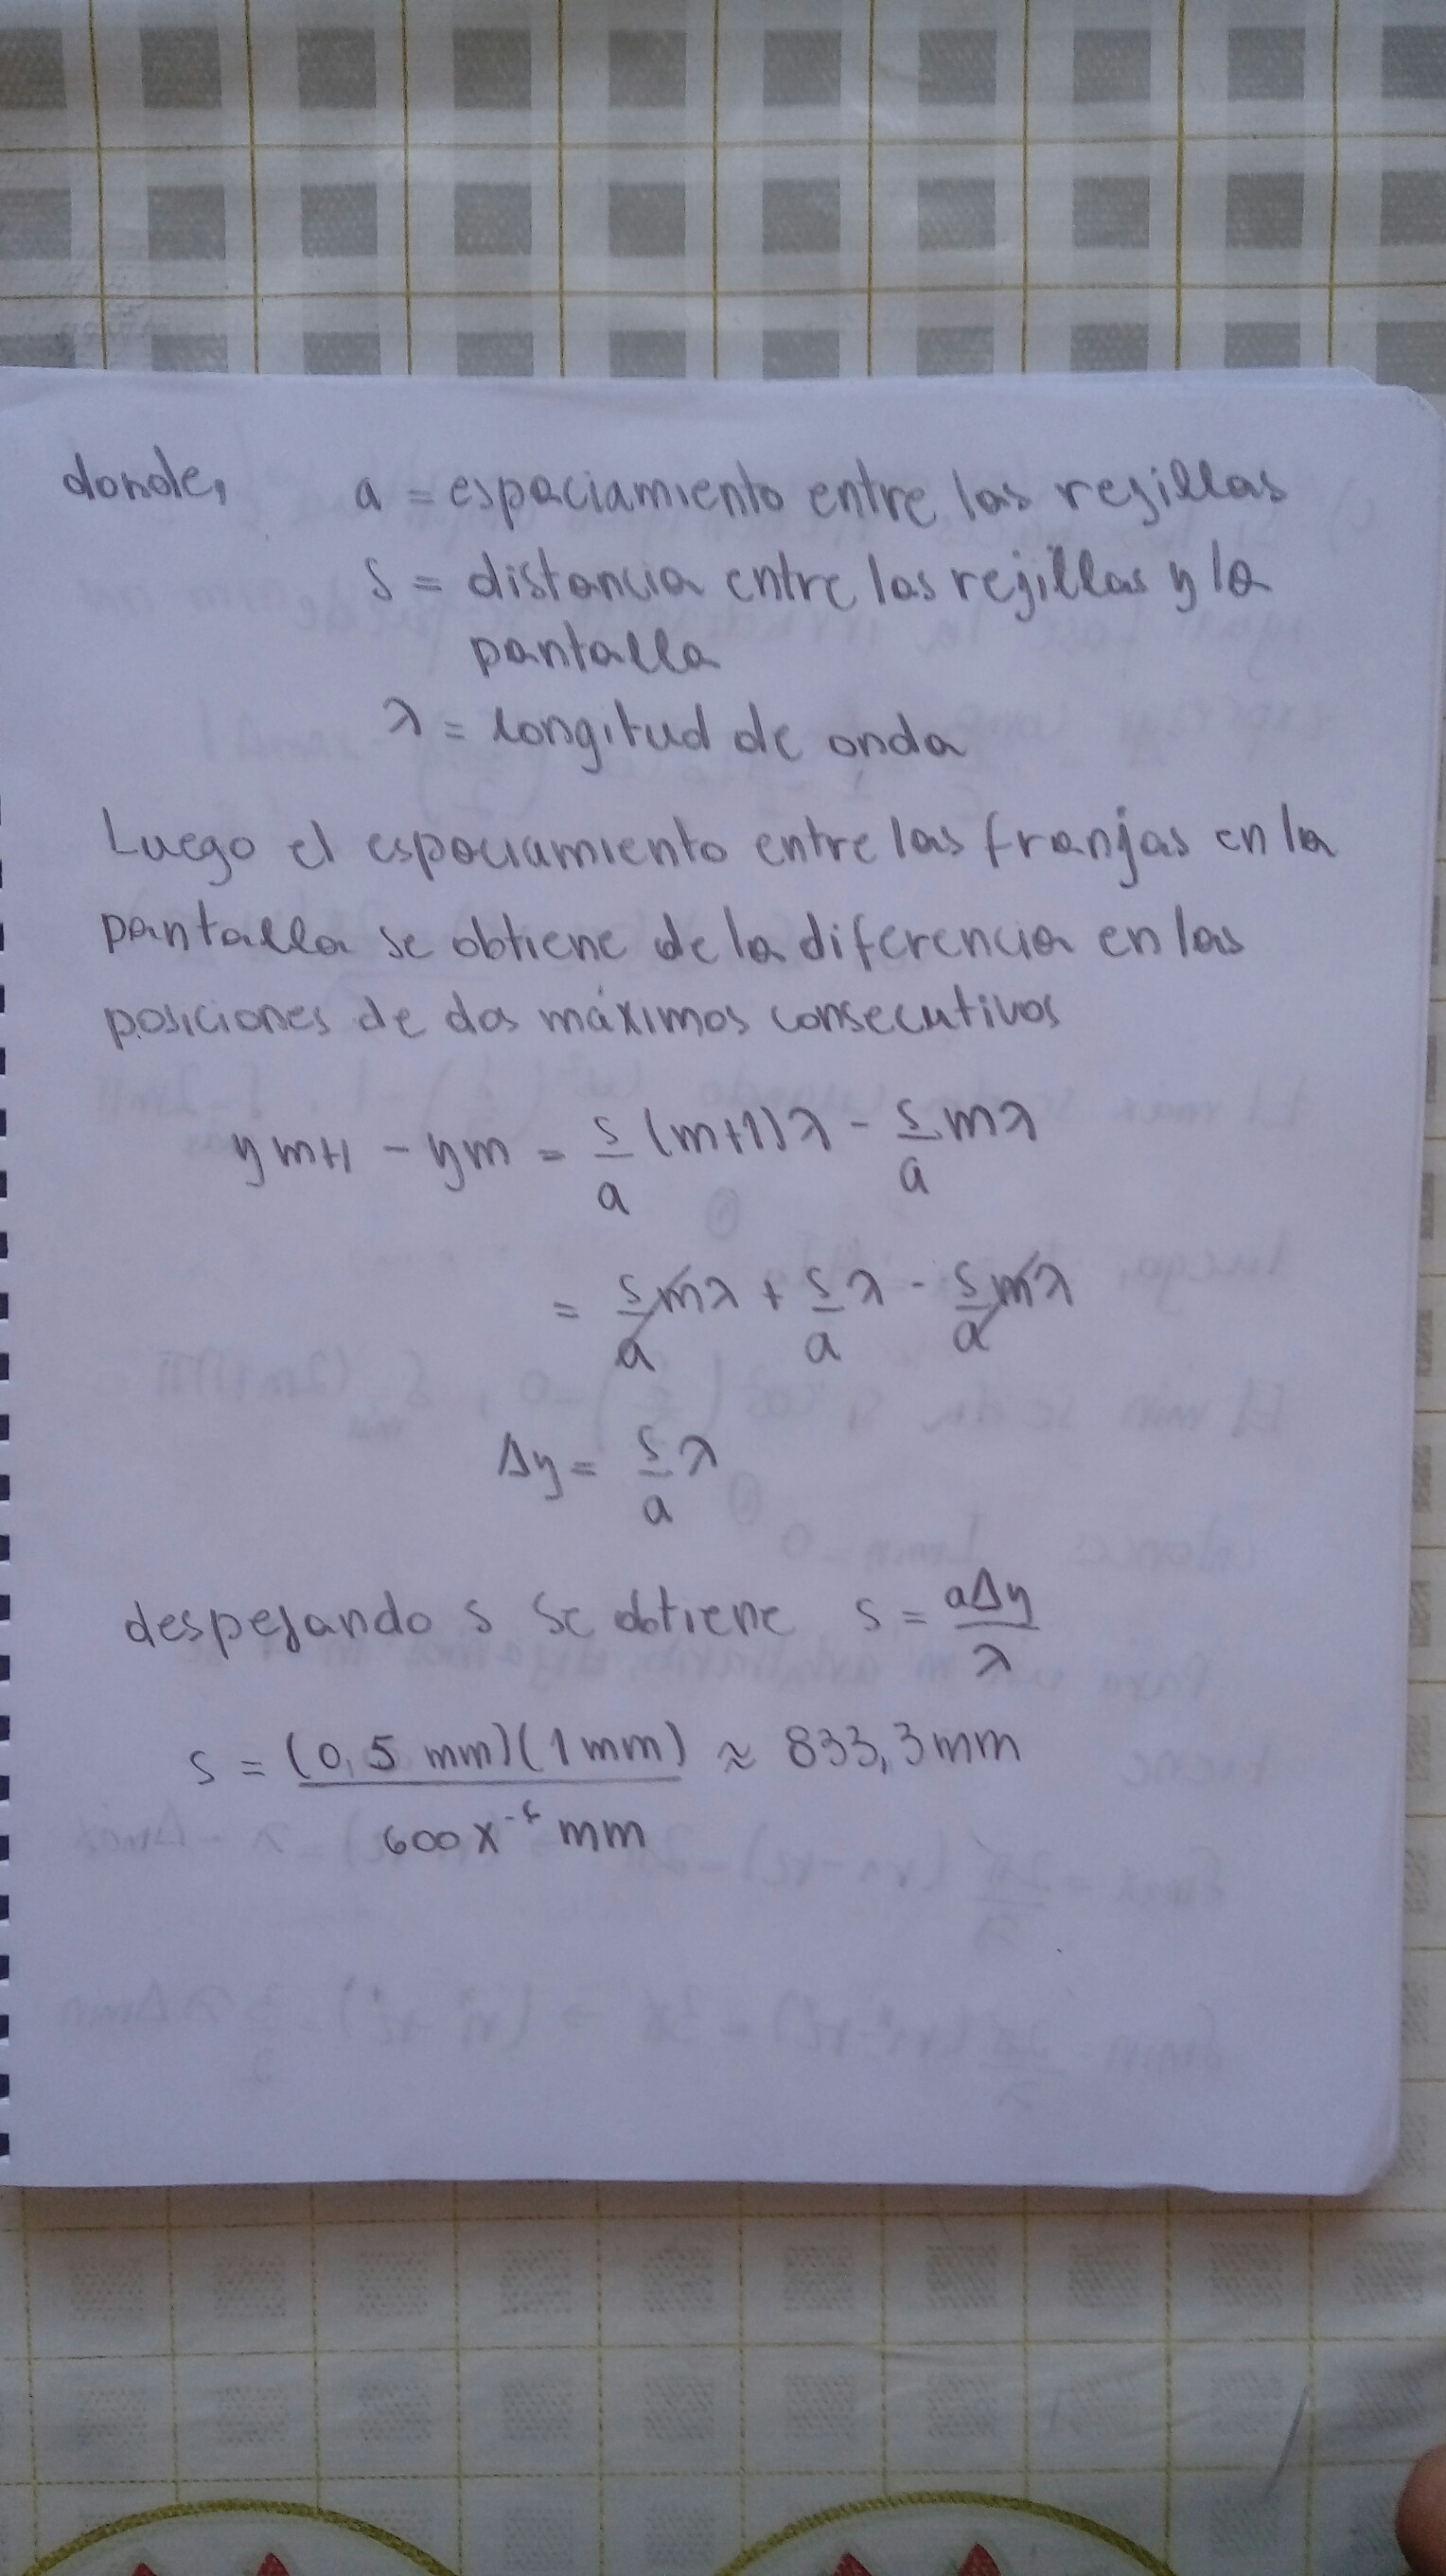 donde, a = espaciamiento entre las rejillas
s = distancia entre las rejillas y la
pantalla
λ = longitud de onda
Luego el espaciamiento entre las franjas en la
pantalla se obtiene de la diferencia en las
posiciones de dos máximos consecutivos
ym+1 - ym = s/a (m+1)λ - s/a mλ
= s/a mλ + s/a λ - s/a mλ
Δy = s/a λ
despejando s se obtiene s = aΔy/λ
s = (0,5 mm)(1 mm) / 600x⁻⁶ mm ≈ 833,3 mm